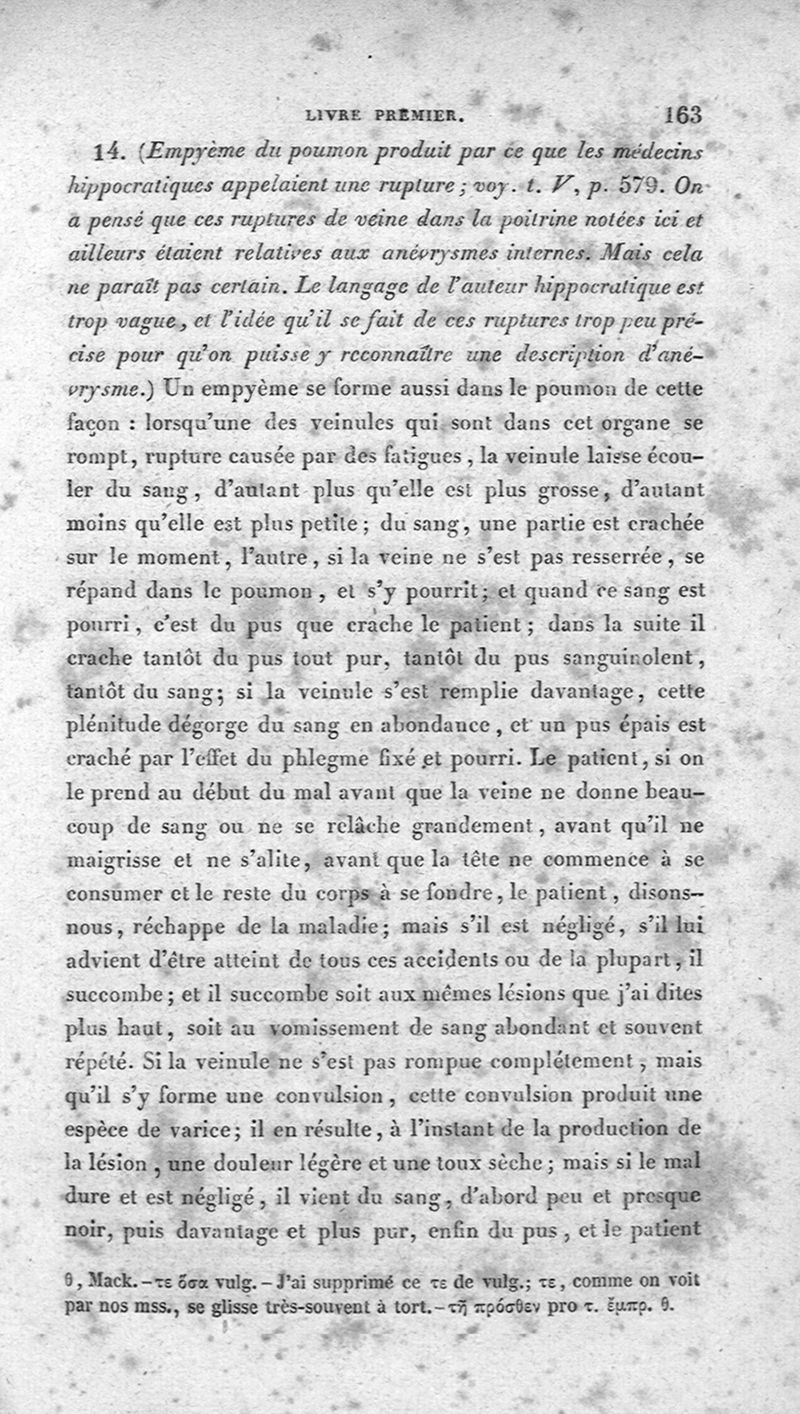 LIVRE PREMIER. 163
14. (Empyème du poumon produit par ce que les médecins
hippocratiques appelaient une rupture ; voy. t. V, p. 579. On
a pensé que ces ruptures de veine dans la poitrine notées ici et
ailleurs étaient relatives aux anévrysmes internes. Mais cela
ne paraît pas certain. Le langage de l'auteur hippocratique est
trop vague, et l'idée qu'il se fait de ces ruptures trop peu pré-
cise pour qu'on puisse y reconnaître une description d'ané-
vrysme.) Un empyème se forme aussi dans le poumon de cette
façon : lorsqu'une des veinules qui sont dans cet organe se
rompt, rupture causée par des fatigues, la veinule laisse écou-
ler du sang, d'autant plus qu'elle est plus grosse, d'autant
moins qu'elle est plus petite ; du sang, une partie est crachée
sur le moment, l'autre, si la veine ne s'est pas resserrée, se
répand dans le poumon, et s'y pourrit ; et quand ce sang est
pourri, c'est du pus que crache le patient ; dans la suite il
crache tantôt du pus tout pur, tantôt du pus sanguinolent,
tantôt du sang ; si la veinule s'est remplie davantage, cette
plénitude dégorge du sang en abondance, et un pus épais est
craché par l'effet du phlegme fixé et pourri. Le patient, si on
le prend au début du mal avant que la veine ne donne beau-
coup de sang ou ne se relâche grandement, avant qu'il ne
maigrisse et ne s'alite, avant que la tête ne commence à se
consumer et le reste du corps à se fondre, le patient, disons-
nous, réchappe de la maladie ; mais s'il est négligé, s'il lui
advient d'être atteint de tous ces accidents ou de la plupart, il
succombe ; et il succombe soit aux mêmes lésions que j'ai dites
plus haut, soit au vomissement de sang abondant et souvent
répété. Si la veinule ne s'est pas rompue complétement, mais
qu'il s'y forme une convulsion, cette convulsion produit une
espèce de varice ; il en résulte, à l'instant de la production de
la lésion, une douleur légère et une toux sèche ; mais si le mal
dure et est négligé, il vient du sang, d'abord peu et presque
noir, puis davantage et plus pur, enfin du pus, et le patient
θ, Mack. – τε ὅσα vulg. – J'ai supprimé ce τε de vulg.; τε, comme on voit
par nos mss., se glisse très-souvent à tort. – τῇ πρόσθεν pro τ. ἔμπρ. θ.